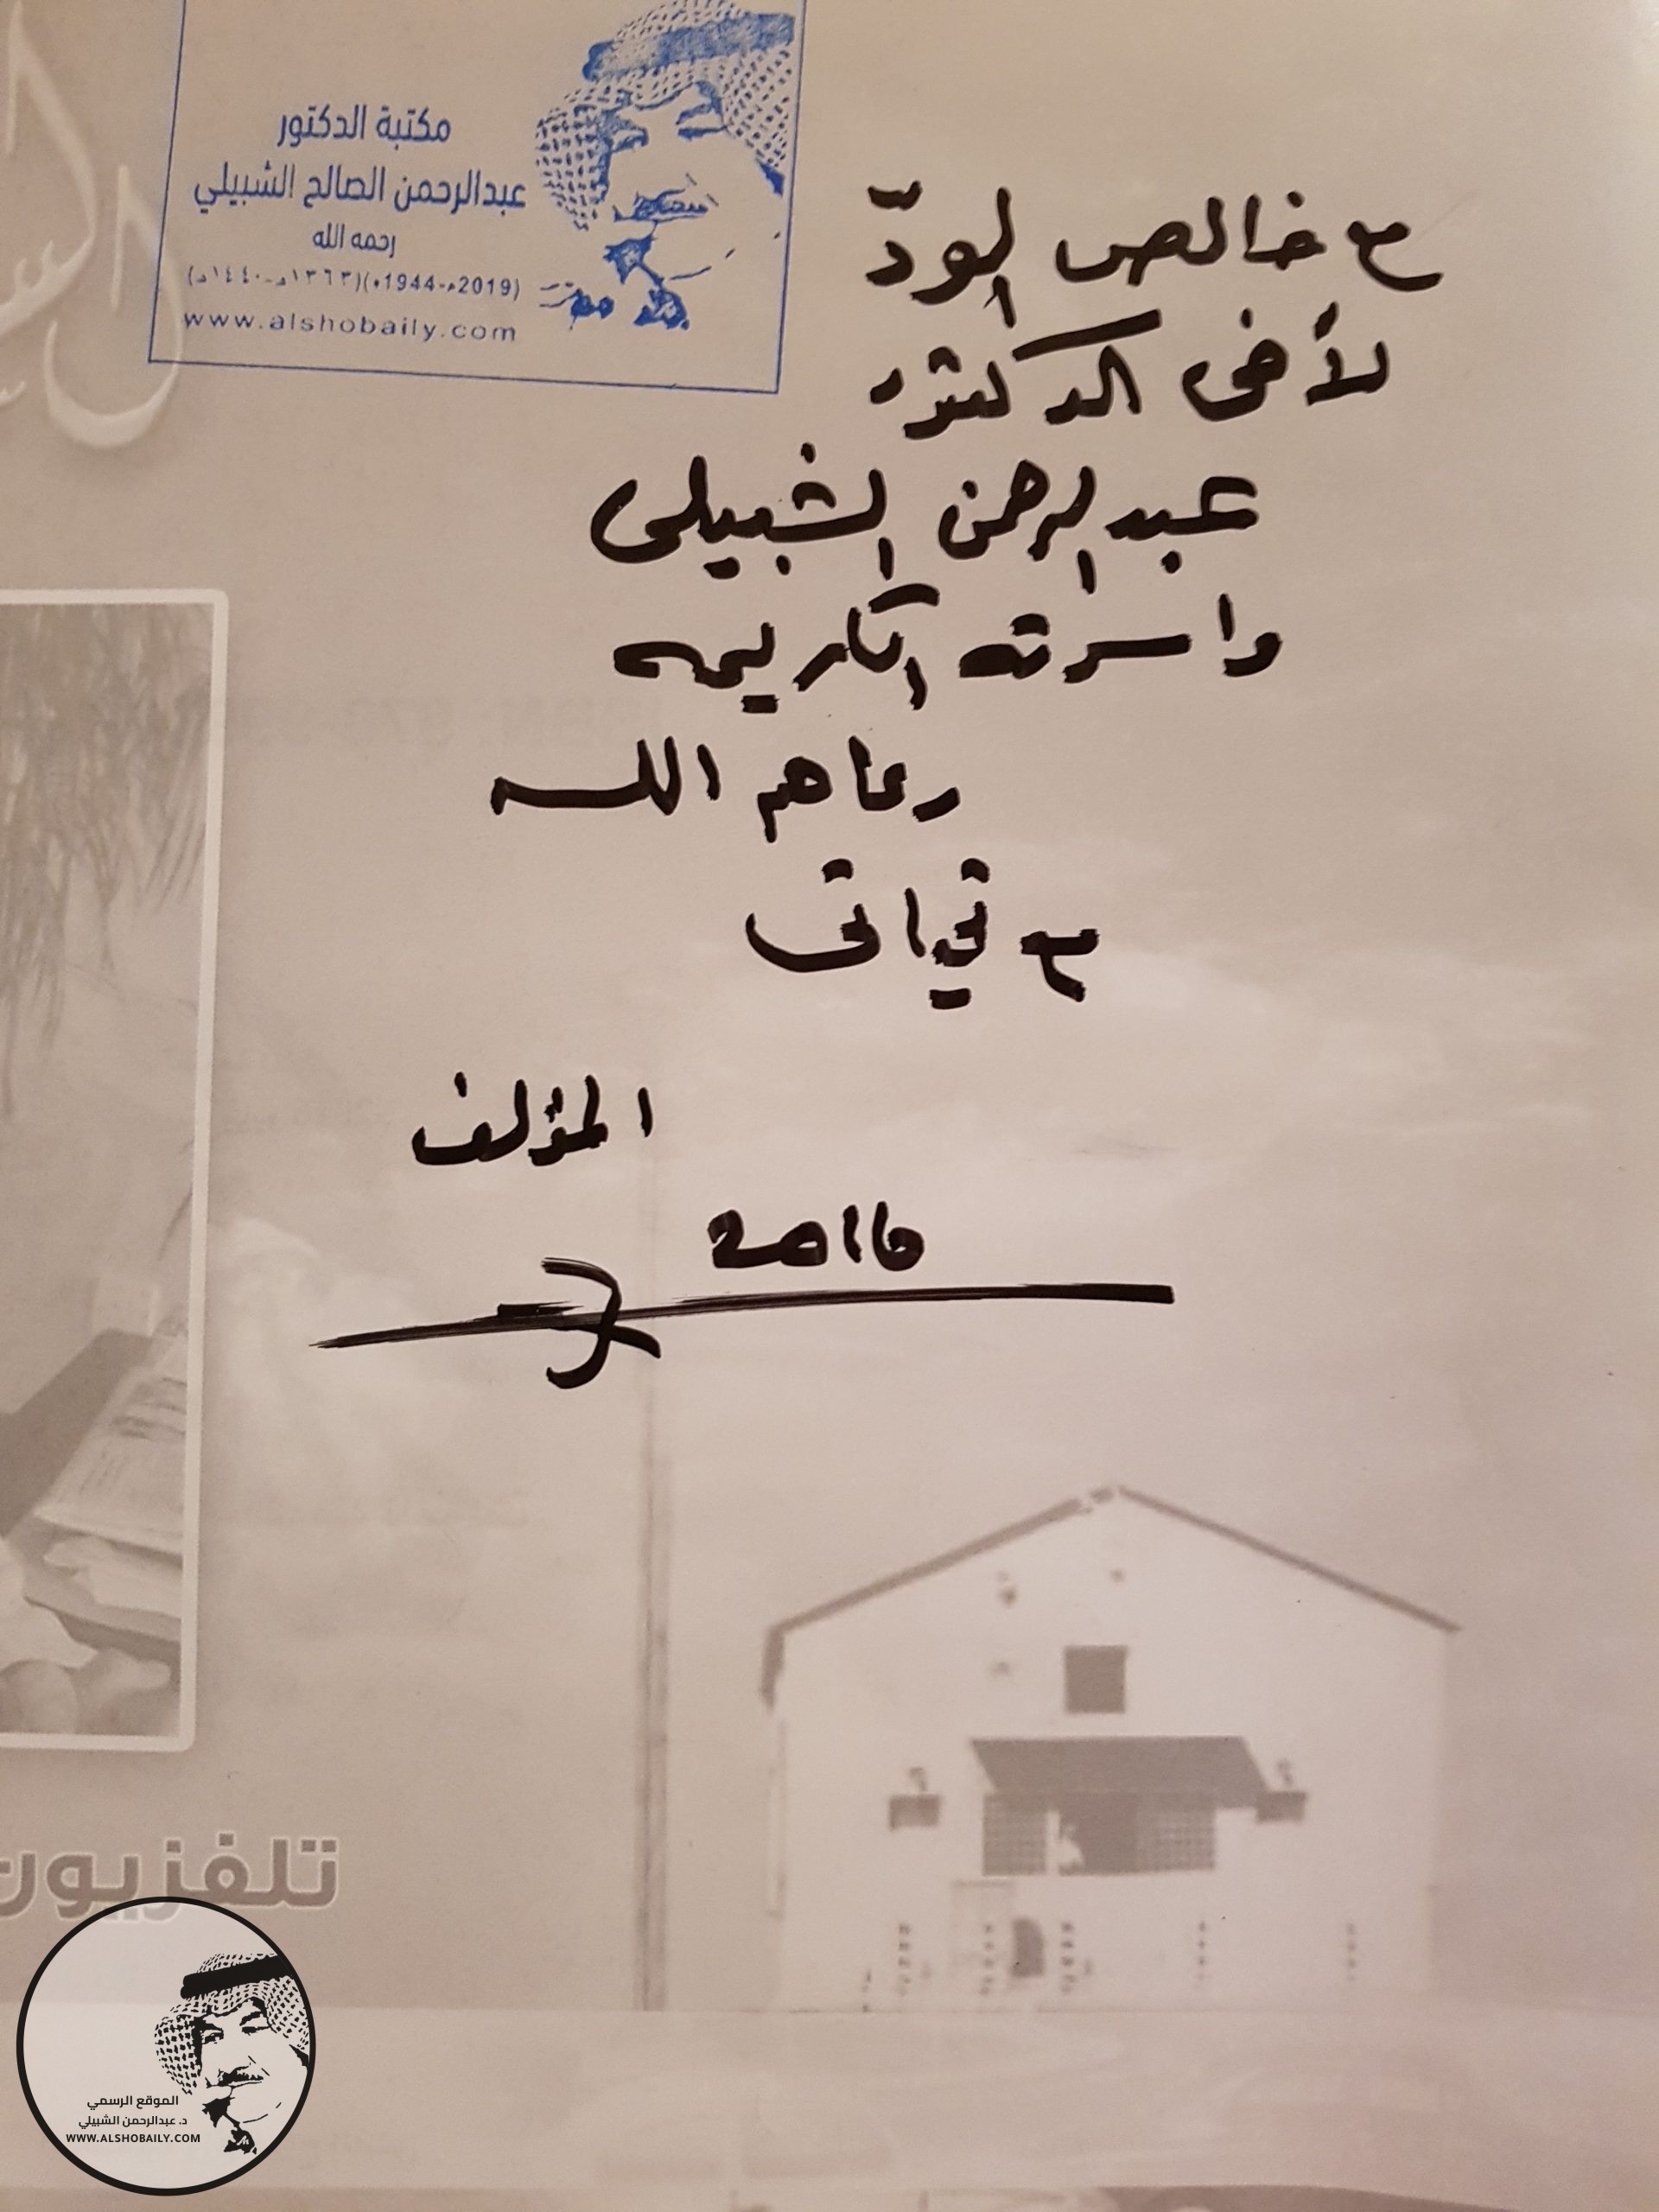 مكتبة الدكتور
عبدالرحمن الصالح الشبيلي
رحمه الله
(١٣٦٣هـ-١٤٤٠هـ)(1944م-2019م)
www.alshobaily.com
مع خالص الودّ
لأخى الدكتور
عبدالرحمن الشبيلى
واسرته الكاريمه
رعاهم الله
مع تحياتى
المؤلف
2016
تلفزيون
الموقع الرسمي
د. عبدالرحمن الشبيلي
WWW.ALSHOBAILY.COM